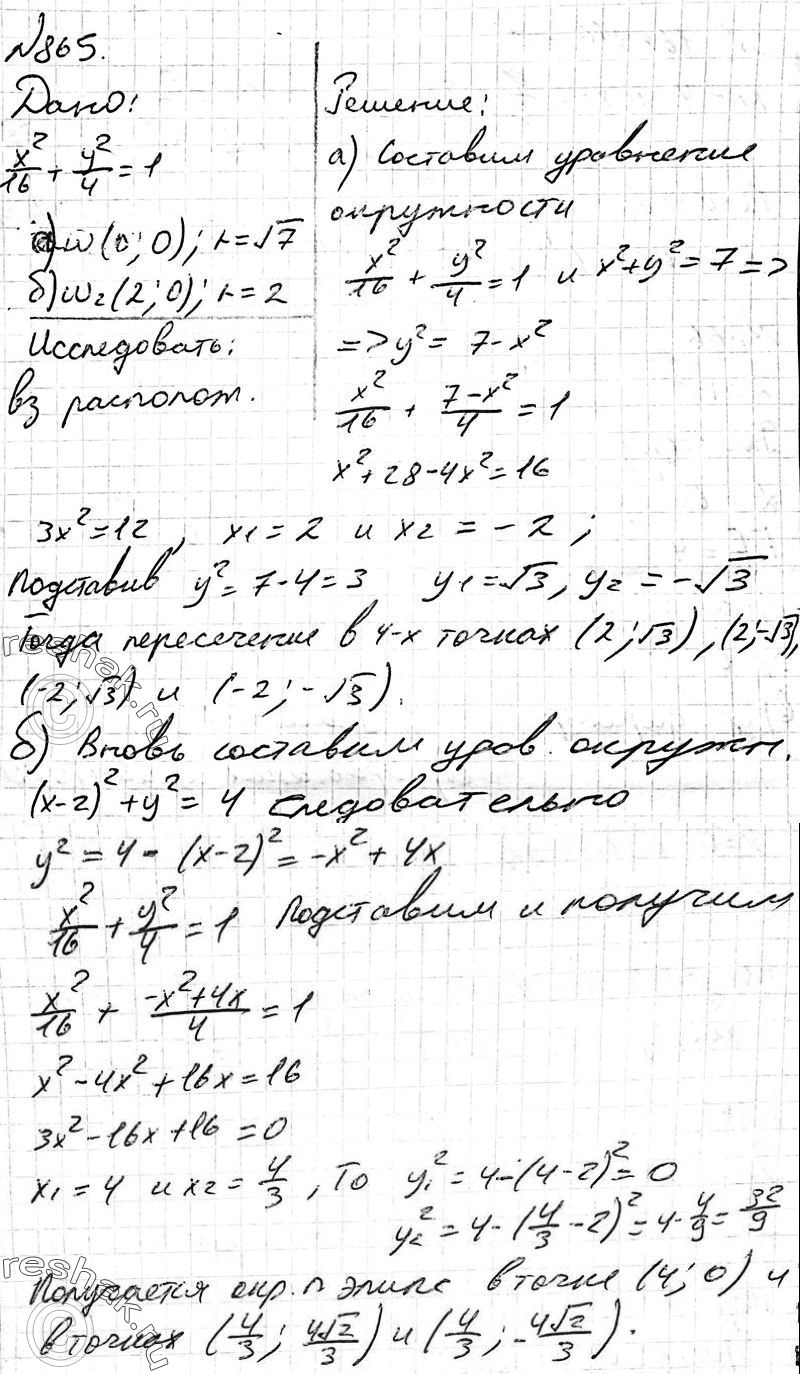 №865.
Дано:
x²/16 + y²/4 = 1
а) ω(0; 0); r=√7
б) ω₂(2; 0); r=2
Исследовать:
вз располож.
Решение:
а) Составим уравнение
окружности
x²/16 + y²/4 = 1 и x²+y²=7 =>
=> y² = 7-x²
x²/16 + (7-x²)/4 = 1
x²+28-4x²=16
3x²=12, x₁=2 и x₂ = -2;
Подставив y²=7-4=3 y₁=√3, y₂=-√3
Тогда пересечение в 4-х точках (2;√3), (2;-√3),
(-2;√3) и (-2;-√3).
б) Вновь составим урав. окружн.
(x-2)²+y²=4 следовательно
y²=4-(x-2)²=-x²+4x
x²/16 + y²/4 = 1 Подставим и получим
x²/16 + (-x²+4x)/4 = 1
x²-4x²+16x=16
3x²-16x+16=0
x₁=4 и x₂=4/3, То y₁²=4-(4-2)²=0
y₂²=4-(4/3-2)²=4-4/9=32/9
Получается окр. п эллипс в точке (4; 0) и
в точках (4/3; 4√2/3) и (4/3; -4√2/3).
reshak.ru
reshak.ru